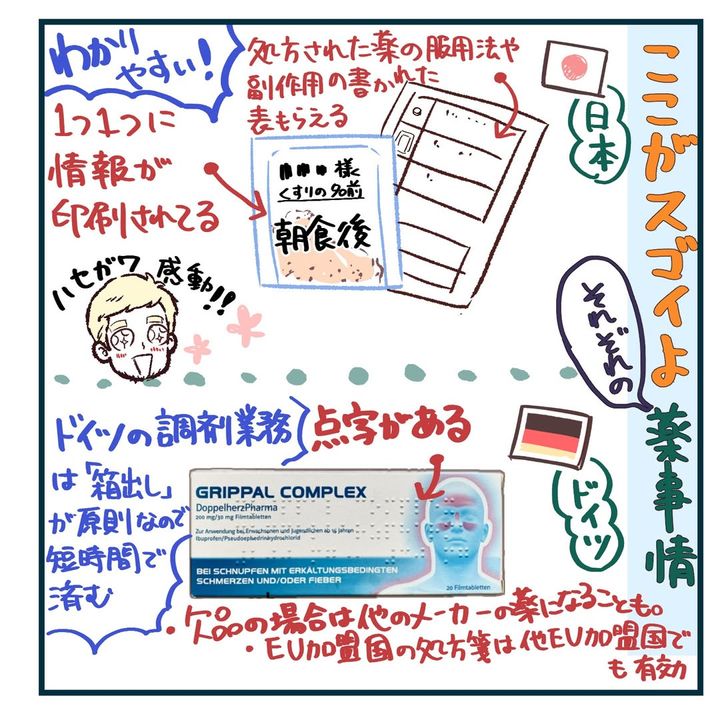 ここがスゴイよ
それぞれの
薬事情
日本
処方された薬の服用法や
副作用の書かれた
表もらえる
わかり
やすい!
1つ1つに
情報が
印刷されてる
様
くすりの名前
朝食後
ハセガワ 感動!!
ドイツ
点字がある
ドイツの調剤業務
は「箱出し」
が原則なので
短時間で
済む
GRIPPAL COMPLEX
DoppelherzPharma
200 mg/30 mg Filmtabletten
Zur Anwendung bei Erwachsenen und Jugendlichen ab 15 Jahren
Ibuprofen/Pseudoephedrinhydrochlorid
BEI SCHNUPFEN MIT ERKÄLTUNGSBEDINGTEN
SCHMERZEN UND/ODER FIEBER
20 Filmtabletten
・欠品の場合は他のメーカーの薬になることも。
・EU加盟国の処方箋は他EU加盟国で
も有効